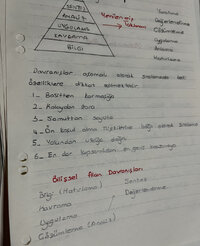 SENTEZ
ANALİZ
UYGULAMA
KAVRAMA
BİLGİ
Değerlendirme
Çözümleme
Uygulama
Anlama
Hatırlama
Davranışlar aşamalı olarak sıralamada belli
özelliklere dikkat edilmektedir.
1- Basitten karmaşığa
2- Kolaydan zora
3- Somuttan soyuta
4- Ön koşul olma ilişkilerine bağlı olarak sıralama
5- Yakından uzağa doğru
6- En dar kapsamlıdan en geniş kapsamlıya
Bilişsel Alan Davranışları
Bilgi (Hatırlama)
Kavrama
Uygulama
Çözümleme (Analiz)
Sentez
Değerlendirme